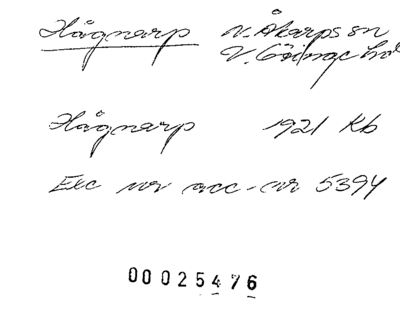 Hågnarp N. Åkarps sn
V. Göinge hd
Hågnarp 1921 Kb
Exc ur acc-nr 5394
00025476